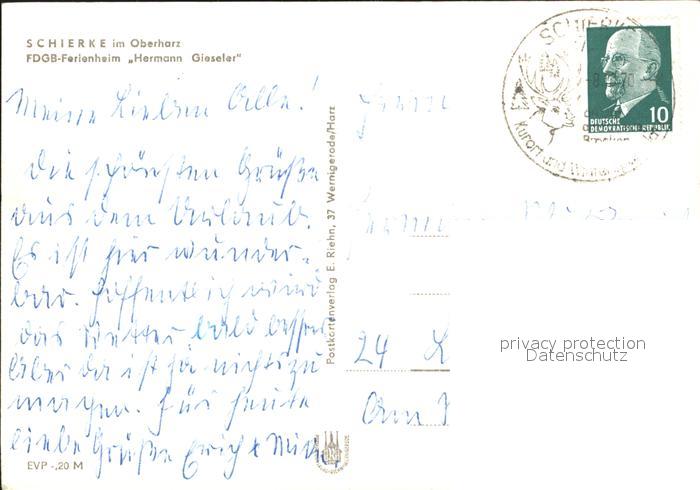 SCHIERKE im Oberharz
FDGB-Ferienheim „Hermann Gieseler"
Meine Lieben Alle!
Die schönsten Grüße
aus dem Urlaub.
Es ist hier wunder-
bar. Hoffentlich wird
das Wetter bald besser
Aber da ist ja nichts zu
machen. Für heute
liebe Grüße Erich +
EVP -,20 M
Postkartenverlag E. Riehn, 37 Wernigerode/Harz
SCHIERKE
-8. 70
Kurort und
Brocken
DEUTSCHE
DEMOKRATISCHE REPUBLIK
10
24
Am
privacy protection
Datenschutz